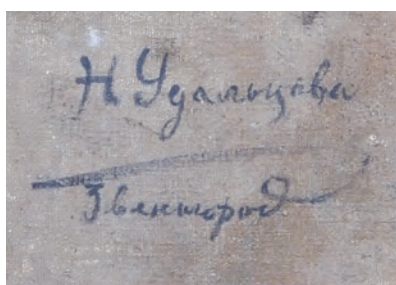 Н Удальцова
Звенигород